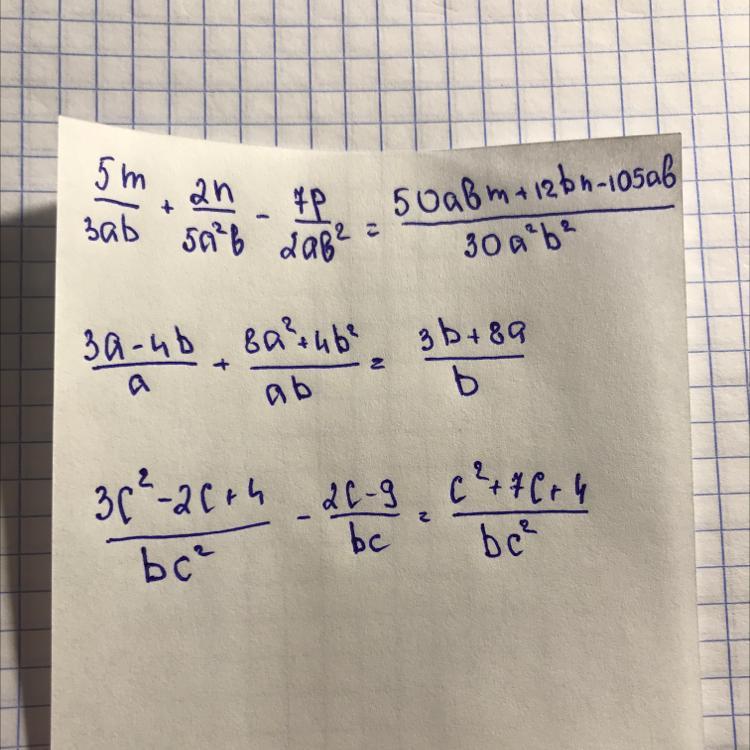 5m/3ab + 2n/5a²b - 7p/2ab² = 50abm+12bn-105ab/30a²b²
3a-4b/a + 8a²+4b²/ab = 3b+8a/b
3c²-2c+4/bc² - 2c-9/bc = c²+7c+4/bc²